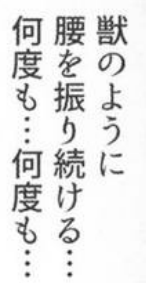 獣のように
腰を振り続ける…
何度も…何度も…